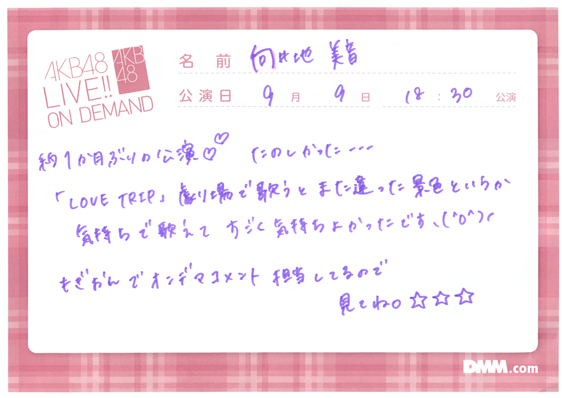 AKB48
LIVE!!
ON DEMAND
AKB
48
名前 向井地 美音
公演日 9月 9日 18:30 公演
約1か月ぶりの公演♡♡ たのしかった---
「LOVE TRIP」劇場で歌うとまた違った景色というか
気持ちで歌えて すごく気持ちよかったです、(^o^)
もぎおんでオンデマコメント 担当してるので
見てね。☆☆☆
DMM.com